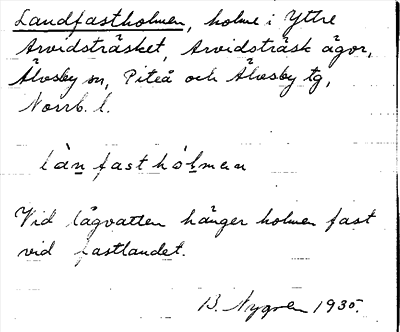 Landfastholmen, holme i Yttre
Arvidsträsket, Arvidsträsk ägor,
Älvsby sn, Piteå och Älvsby tg,
Norrb. l.
lànfasthólmen
Vid lågvatten hänger holmen fast
vid fastlandet.
B. Nygren 1935.